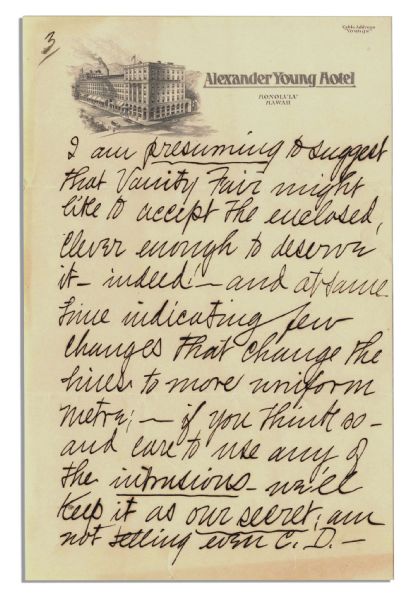 3
Cable Address
"Young"
Alexander Young Hotel
HONOLULU
HAWAII
I am presuming to suggest
that Vanity Fair might
like to accept the enclosed,
clever enough to deserve
it – indeed! – and at same
time indicating few
changes that change the
lines to more uniform
metre; – if you think so –
and care to use any of
the intrusions – we'll
keep it as our secret; am
not telling even C. D. –